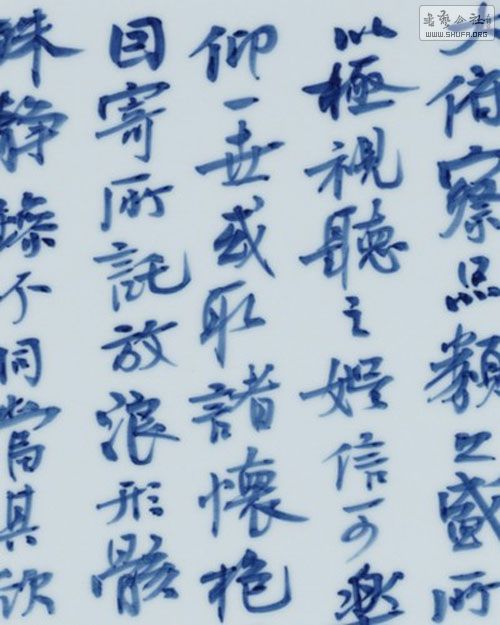 大俯察品類之盛所
以極視聽之娛信可樂
仰一世或取諸懷抱
因寄所託放浪形骸
殊静躁不同當其欣
WWW.SHUFA.ORG